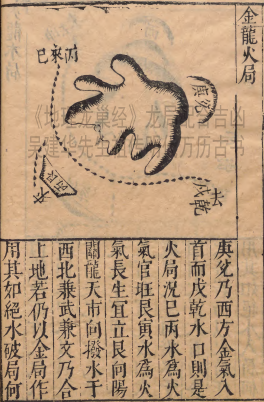 金龍火局
丙來巳
庚兌
去
戌乾
水
庚兌乃西方金氣入
首而戌乾水口則是
火局況巳丙水為火
氣官旺艮寅水為火
氣長生宜立艮向陽
關龍天市向撥水于
西北兼武兼文乃合
上地若仍以金局作
用其如絕水破局何
吴建华先生
万历古书